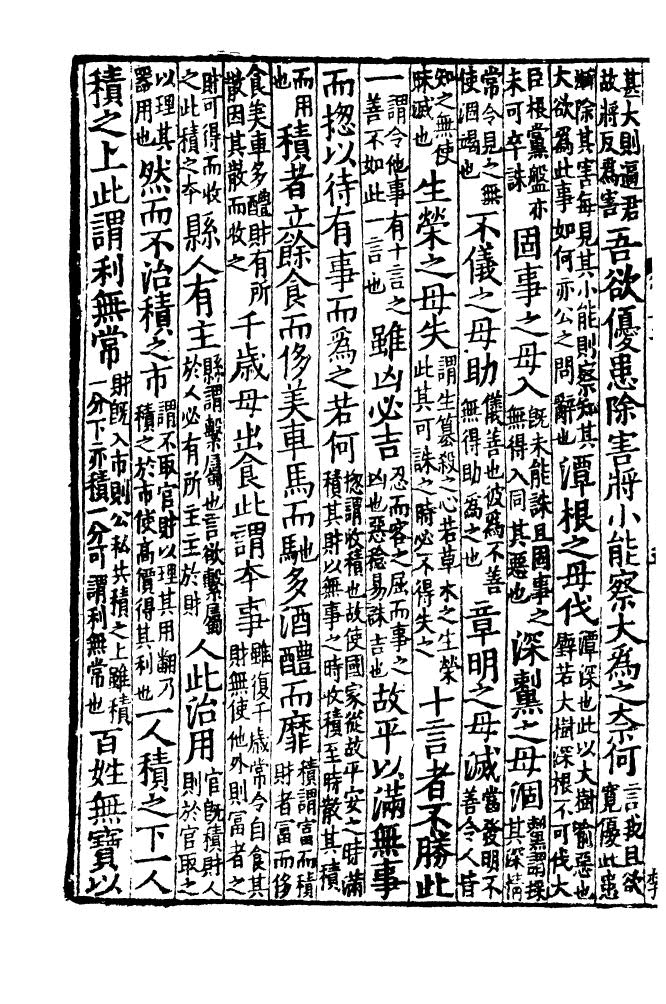 甚大則逼君故將反爲害吾欲優患除害將小能察大爲之奈何言我且欲寬優此患
解除其害每見其小能則察知其大欲爲此事如何亦公之問辭也潭根之毋伐潭深也此以大樹喻惡也僻若大樹深根不可伐大
臣根黨盤亦未可卒誅固事之毋入既未能誅且固事之無得入同其惡也深黧之毋涸黧謂探其深情
常令見之無使涸竭也不儀之毋助儀善也彼爲不善無得助爲之也章明之毋滅當發明不善令人皆
知之無使昧滅也生榮之毋失謂生篡殺之心若草木之生榮此其可誅之時必不得失之十言者不勝此
一謂令他事有十言之善不如此一言也雖凶必吉忍而容之屈而事之凶也惡稔易誅吉也故平以滿無事
而揔以待有事而爲之若何揔謂收積也故使國家從故平安之時滿積其財以無事之時收積至時散其積
而用也積者立餘食而侈美車馬而馳多酒醴而靡積謂富而積財者富而侈
食美車多醴財有所散因其散而收之千歲毋出食此謂本事雖復千歲常令自食其財無使他外則富者之
財可得而收之此積之本縣人有主縣謂繫屬也言欲繫屬於人必有所主主於財人此治用官既積財人則於官取之
以理其器用也然而不治積之市謂不取官財以理其用翻乃積之於市使高價得其利也一人積之下一人
積之上此謂利無常財既入市則公私共積之上雖積一分下亦積一分可謂利無常也百姓無寶以